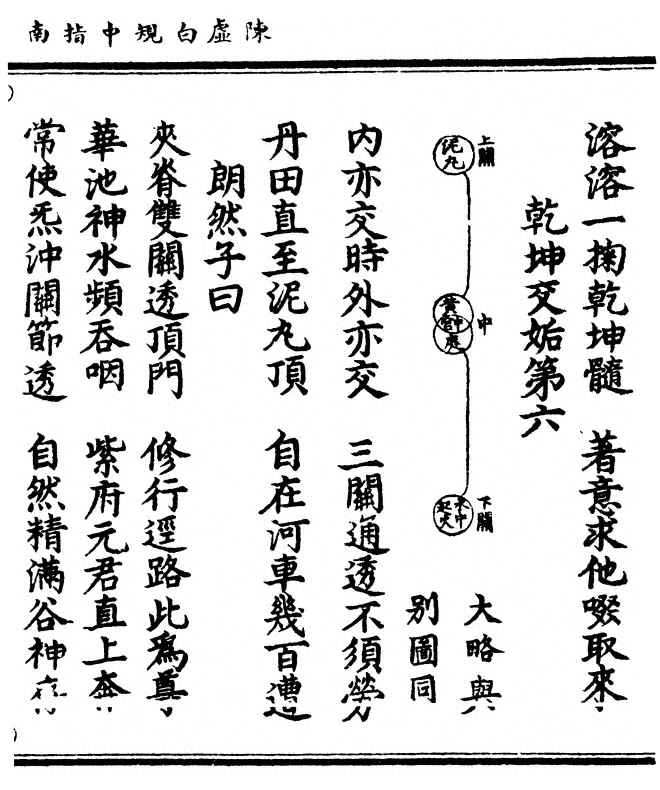 陳虛白規中指南
溶溶一掬乾坤髓　著意求他啜取來
乾坤交姤第六
上關
泥丸
中
黃
下關
水中起火
大略與
別圖同
內亦交時外亦交　三關通透不須勞
丹田直至泥丸頂　自在河車幾百遭
朗然子曰
夾脊雙關透頂門　修行逕路此爲尊
華池神水頻吞咽　紫府元君直上奔
常使炁沖關節透　自然精滿谷神存